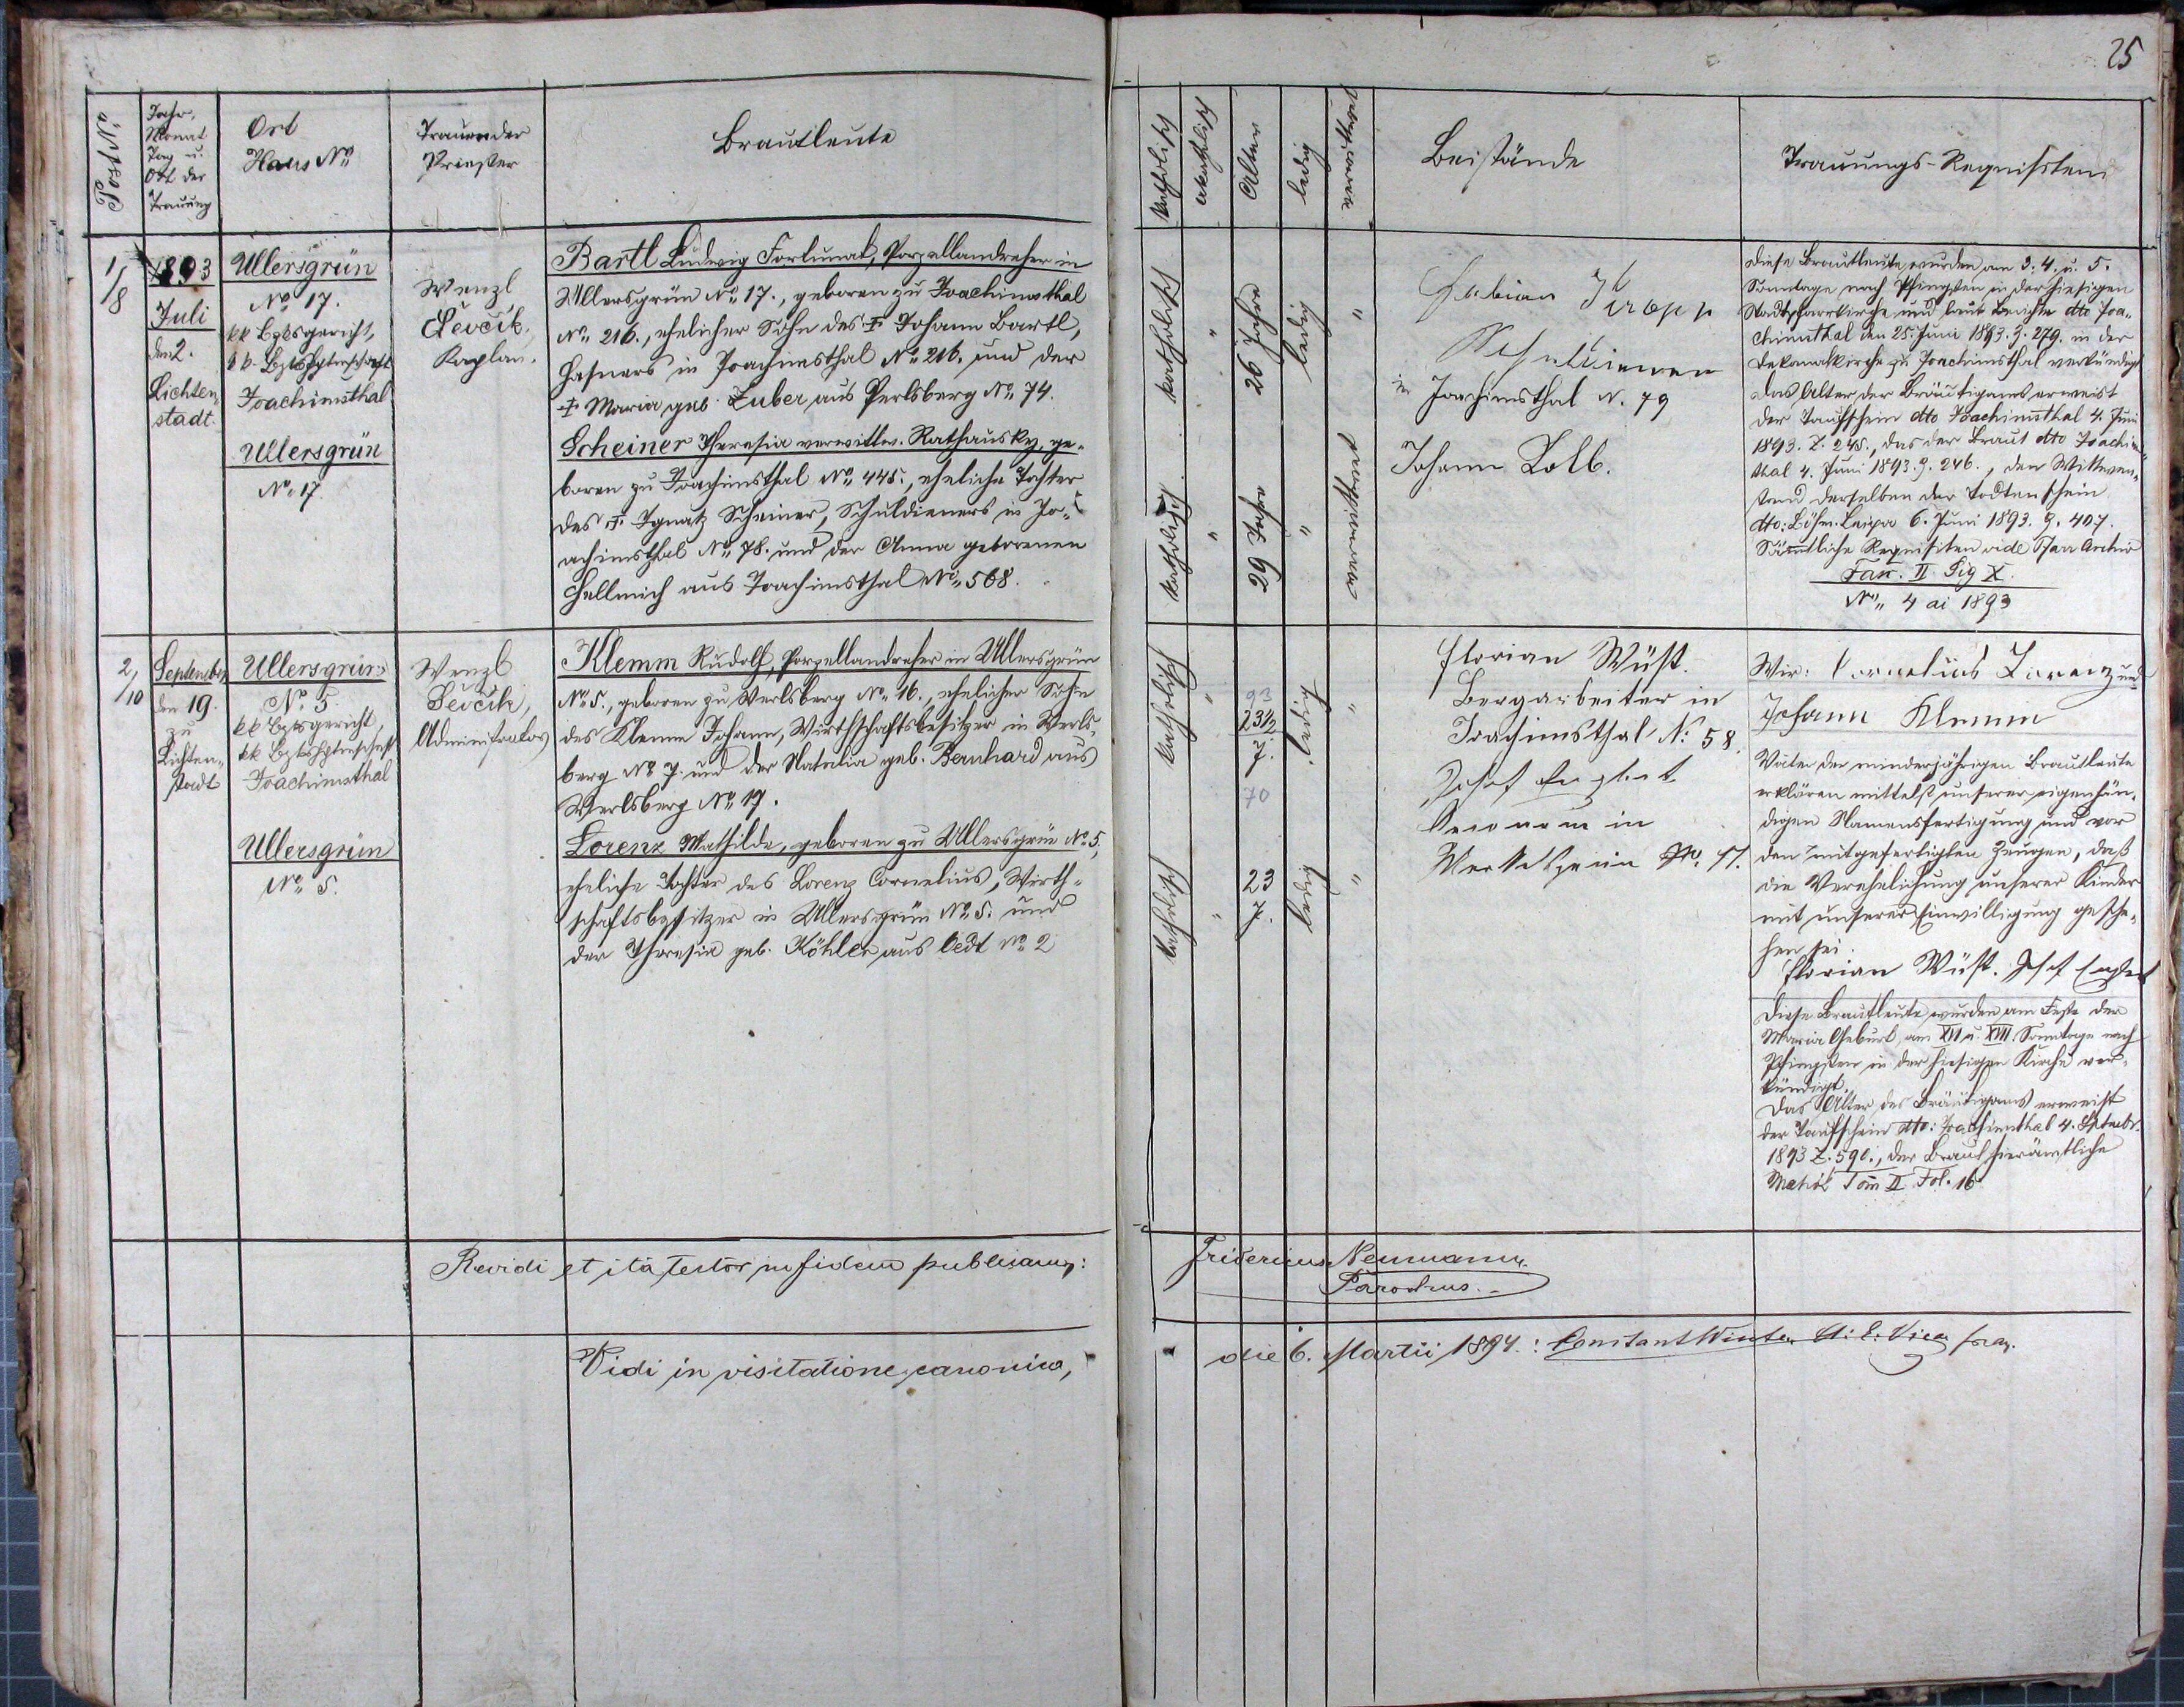 25
Post N°.
Jahr,
Monat
Tag u.
Ort der
Trauung
Ort
Haus N°
Trauender
Priester
Brautleute
katholisch
akatholisch
Alter
ledig
Beistände
Trauungs-Requisiten
1/8
1893
Juli
den 2.
Lichten-
stadt.
Ullersgrün
N° 17.
kk Bzksgericht,
kk. Bzkshptmschaft
Joachimsthal
Ullersgrün
N° 17
Wenzl
Ševčik,
Kaplan.
Bartl Ludwig Fortunat, Porzellandreher in
Ullersgrün N° 17., geboren zu Joachimsthal
N° 216., ehelicher Sohn des † Johann Bartl,
Hafners in Joachimsthal N° 216. und der
† Maria geb. Zuber aus Perlsberg N° 74.
Scheiner Theresia verwittw. Rathausky, ge-
boren zu Joachimsthal N° 445., eheliche Tochter
des † Ignatz Scheiner, Schuldieners in Jo-
achimsthal N° 78. und der Anna geborenen
Hellmich aus Joachimsthal N° 568.
katholisch
"
26 Jahre
ledig
"
katholisch
"
29 Jahre
"
verwittwet
Fabian Kropp
in Joachimsthal N. 79
Johann Kolb.
Diese Brautleute wurden am 3. 4. u. 5.
Sonntage nach Pfingsten in der hiesigen
Stadtpfarrkirche und laut Bericht dto Joa-
chimsthal den 25. Juni 1893. Z. 279. in der
Dekanalkirche zu Joachimsthal verkündigt
Das Alter des Bräutigams erweist
der Taufschein dto Joachimsthal 4. Juni
1893. Z. 245., das der Braut dto Joachims-
thal 4. Juni 1893. Z. 246., den Wittwen-
stand derselben der Todtenschein
dto: Böhm. Leipa 6. Juni 1893. Z. 407.
Sämmtliche Requisiten vide Pfarr Archiv
Fasc. II Fig X.
N° 4 ai 1893
2/10
September
den 19.
zu
Lichten-
stadt
Ullersgrün
N° 5.
kk Bzksgericht,
kk Bzkshptmschaft
Joachimsthal
Ullersgrün
N° 5.
Wenzl
Ševčik,
Administrator
Klemm Rudolf, Porzellandreher in Ullersgrün
N° 5., geboren zu Werlsberg N° 16., ehelicher Sohn
des Klemm Johann, Wirthschaftsbesitzer in Werls-
berg N° 7. und der Natalia geb. Bernhard aus
Werlsberg N° 17.
Lorenz Mathilde, geboren zu Ullersgrün N° 5,
eheliche Tochter des Lorenz Cornelius, Wirth-
schaftsbesitzer in Ullersgrün N° 5. und
der Theresia geb. Köhler aus Oedt N° 2
katholisch
"
93
23 1/2
J.
70
ledig
"
katholisch
"
23
J.
ledig
"
Florian Wüst.
Bergarbeiter in
Joachimsthal N: 58.
Josef Englert
in
Wir: Cornelius Lorenz und
Johann Klemm
Väter der minderjährigen Brautleute
erklären mittelst unserer eigenhän-
digen Namensfertigung und vor
den mitgefertigten Zeugen, daß
die Verehelichung unserer Kinder
mit unserer Einwilligung gesche-
hen sei.
Florian Wüst. Josef Englert
Diese Brautleute wurden am Feste der
Maria Geburt, am XVI u. XVII. Sonntage nach
Pfingsten in der hiesigen Kirche ver-
kündigt.
Das Alter des Bräutigams erweist
der Taufschein dto: Joachimsthal 4. Septembr.
1893 Z. 590., der Braut hierämtliche
Matrik Tom II Fol. 16
Revidi et ita testor in fidem publicam:
Fridericus Neumann
Parochus.
Vidi in visitatione canonica,
die 6. Martii 1894.: Constant Winter